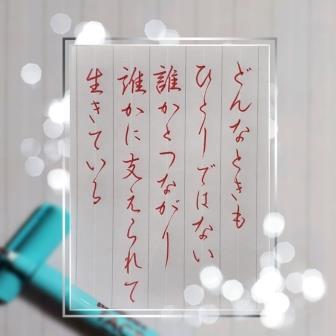 どんなときも
ひとりではない
誰かとつながり
誰かに支えられて
生きている